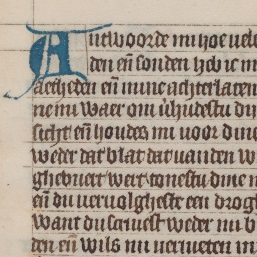 Antwoorde mi hoe vele
den en̄ sonden heb ic m
aetheden en̄ mine achterlaten
ne mi waer om verhudestu din
sicht en̄ houdes mi voor dine
weder dat blat dat vanden w
ghevuert wert toenestu dine m
en̄ du vervolgheste een drogh
Want du scrivest weder mi b
den en̄ wils mi verneten m